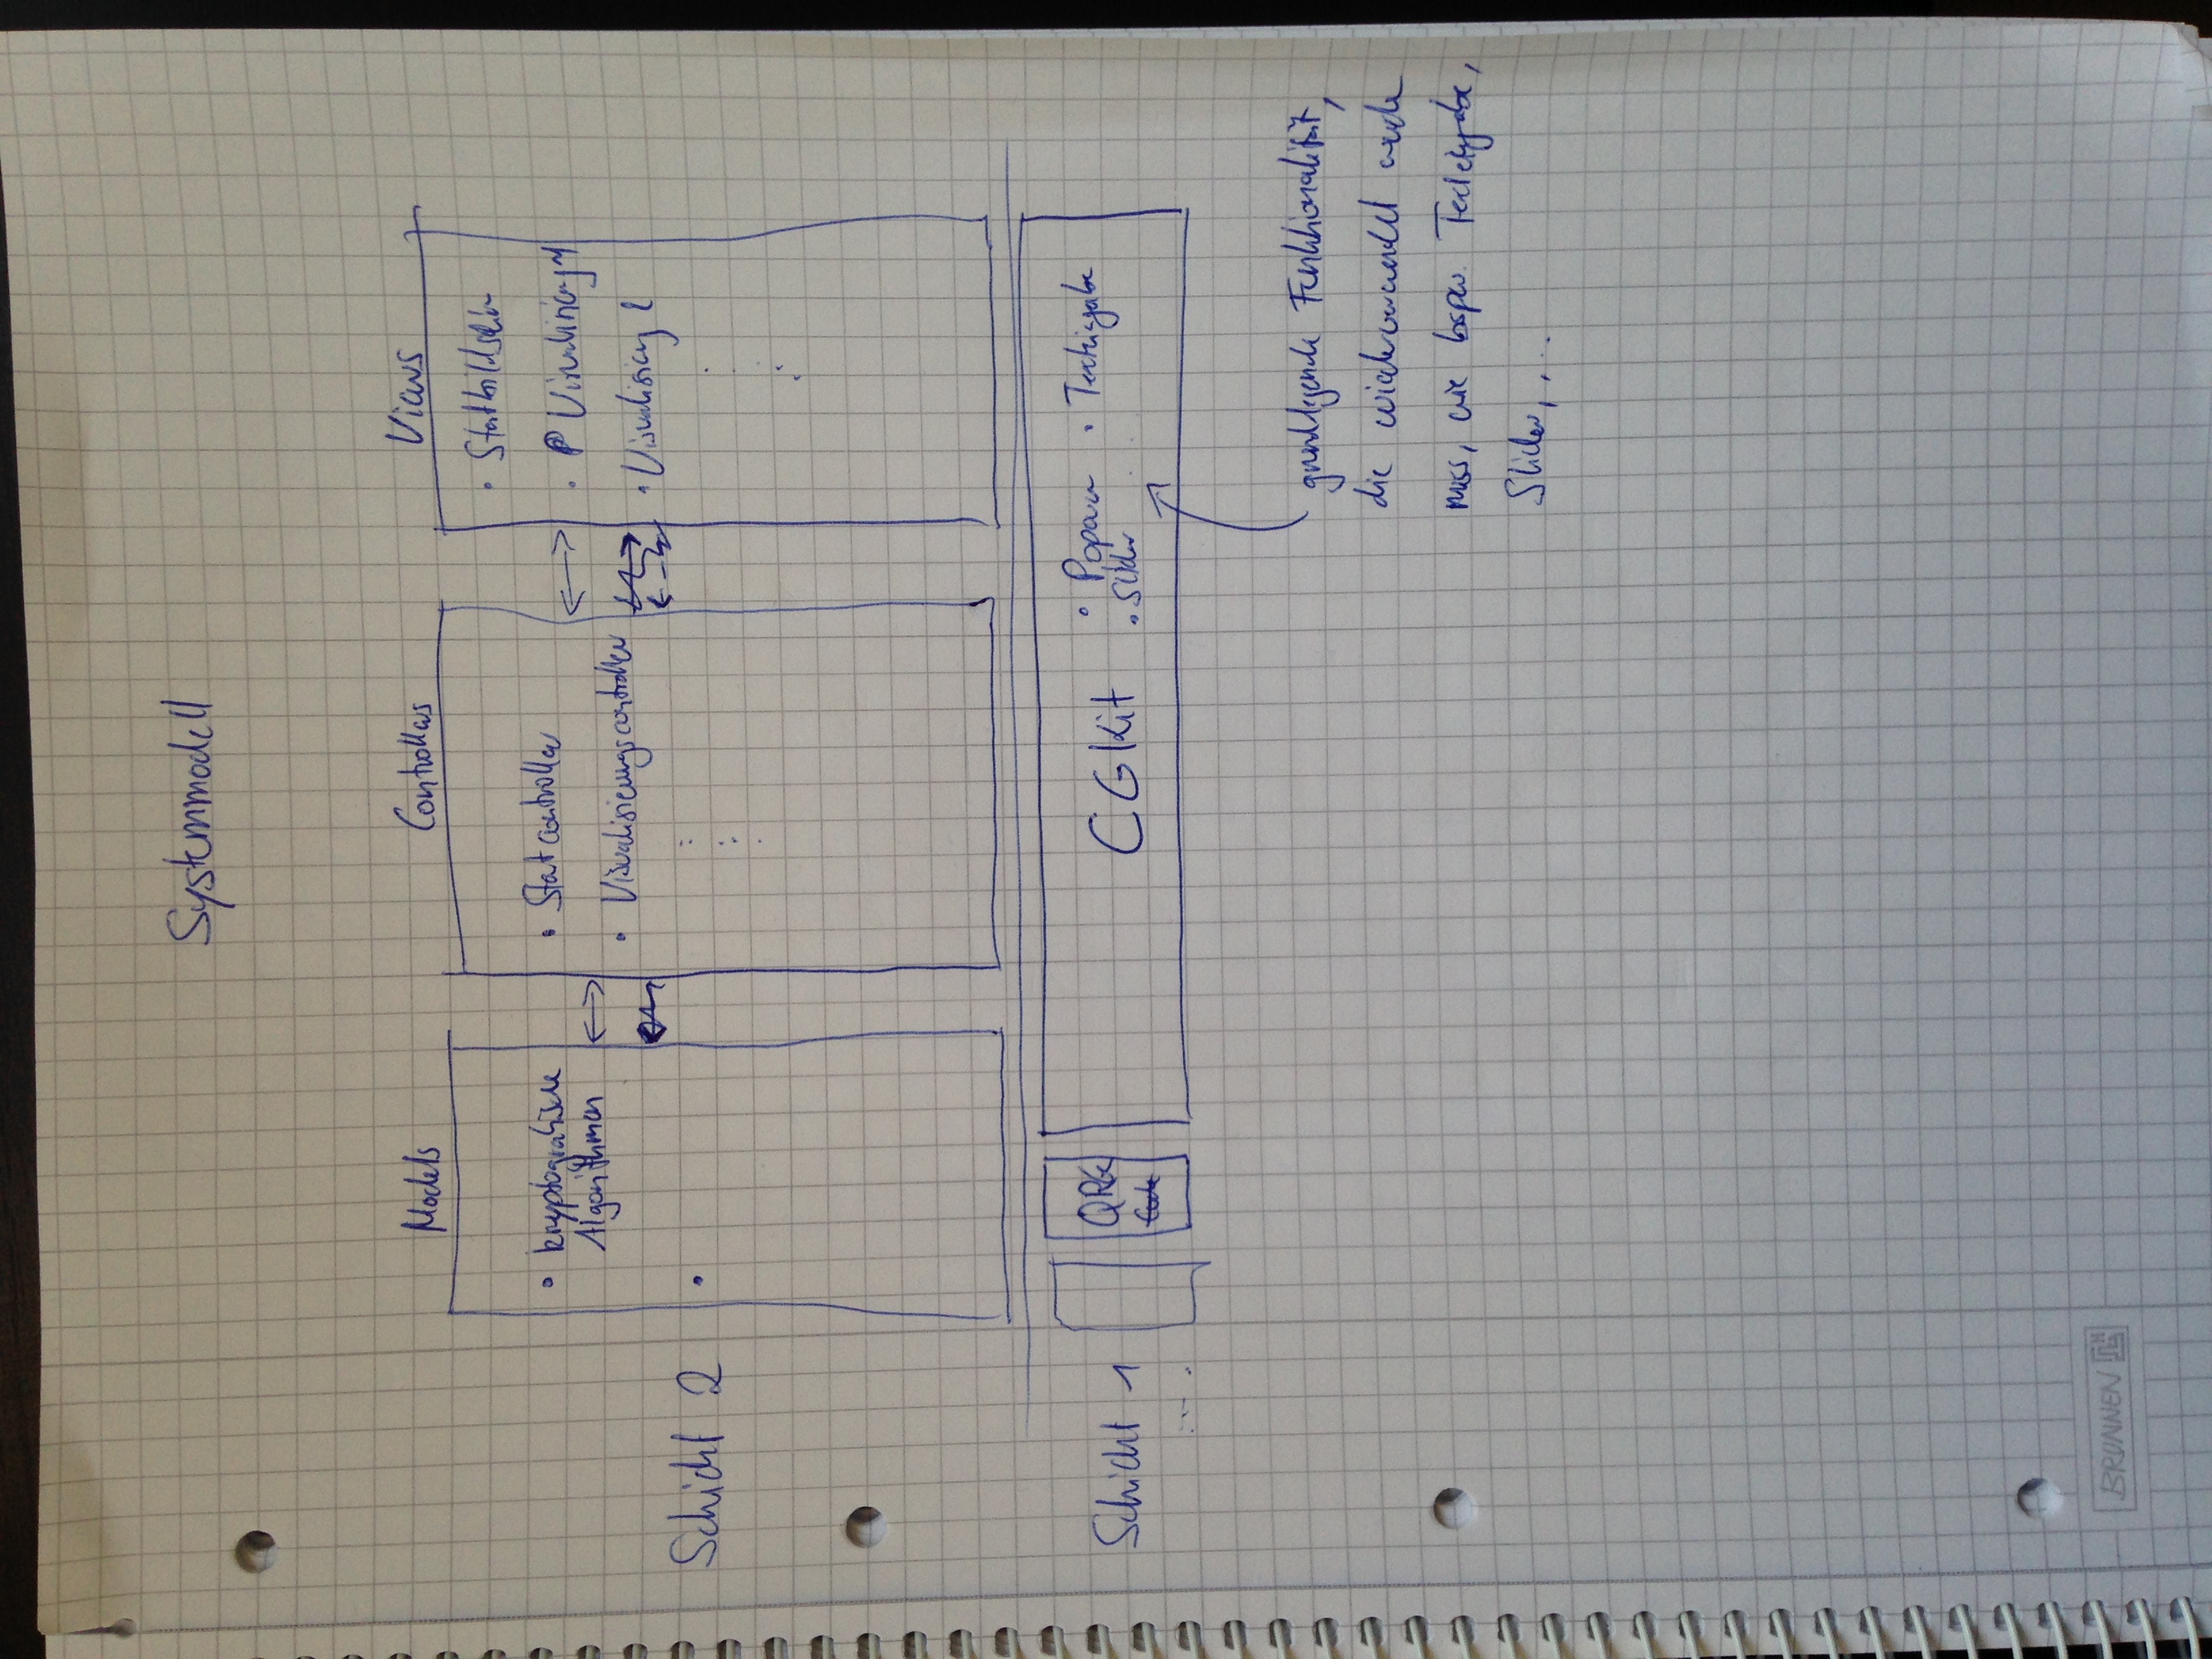 Systemmodell
Models
Controllers
Views
• kryptografische
Algorithmen
•
• Startcontroller
• Visualisierungscontroller
• Startbildschirm
• Visualisierung 1
• Visualisierung 2
Schicht 2
Schicht 1
....
QR
Code
CGKit
• Popover • Texteingabe
• Slider
grundlegende Funktionalität,
die wiederverwendet werden
muss, wie bspw. Texteingabe,
Slider, ...
BRUNNEN